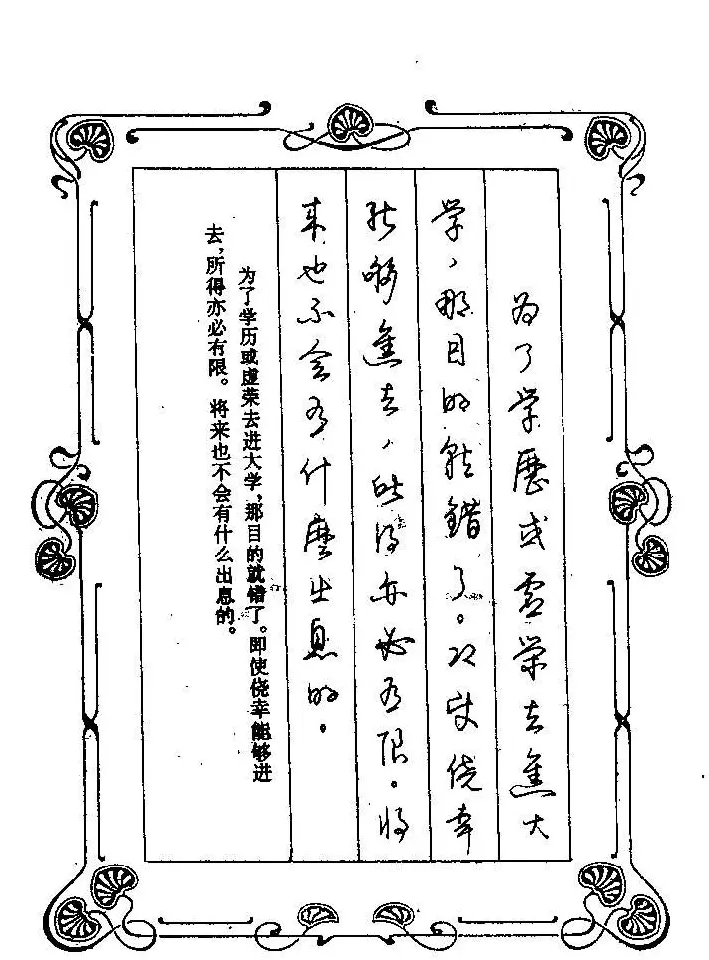 为了学歷或虚荣去進大
学，那目的就錯了。即使侥幸
能够進去，所得亦必有限。将
来也不会有什麼出息的。
为了学历或虚荣去进大学，那目的就错了。即使侥幸能够进
去，所得亦必有限。将来也不会有什么出息的。